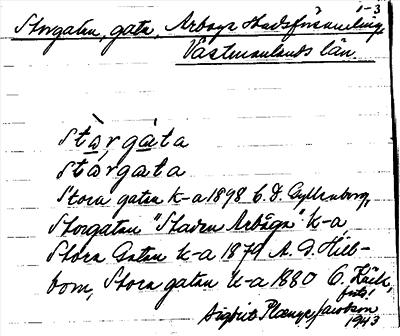 1-3
Storgatan, gata, Arboga stadsförsamling,
Västmanlands län.
Stòrgàta
Stárgata
Stora gatan k-a 1898 C. D. Gyllenborg,
Storgatan "Staden Arboga" k-a
Stora Gatan k-a 1879 A. D. Hill-
bom, Stora gatan k-a 1880 C.
Sigbrit Plænge Jacobson
1943